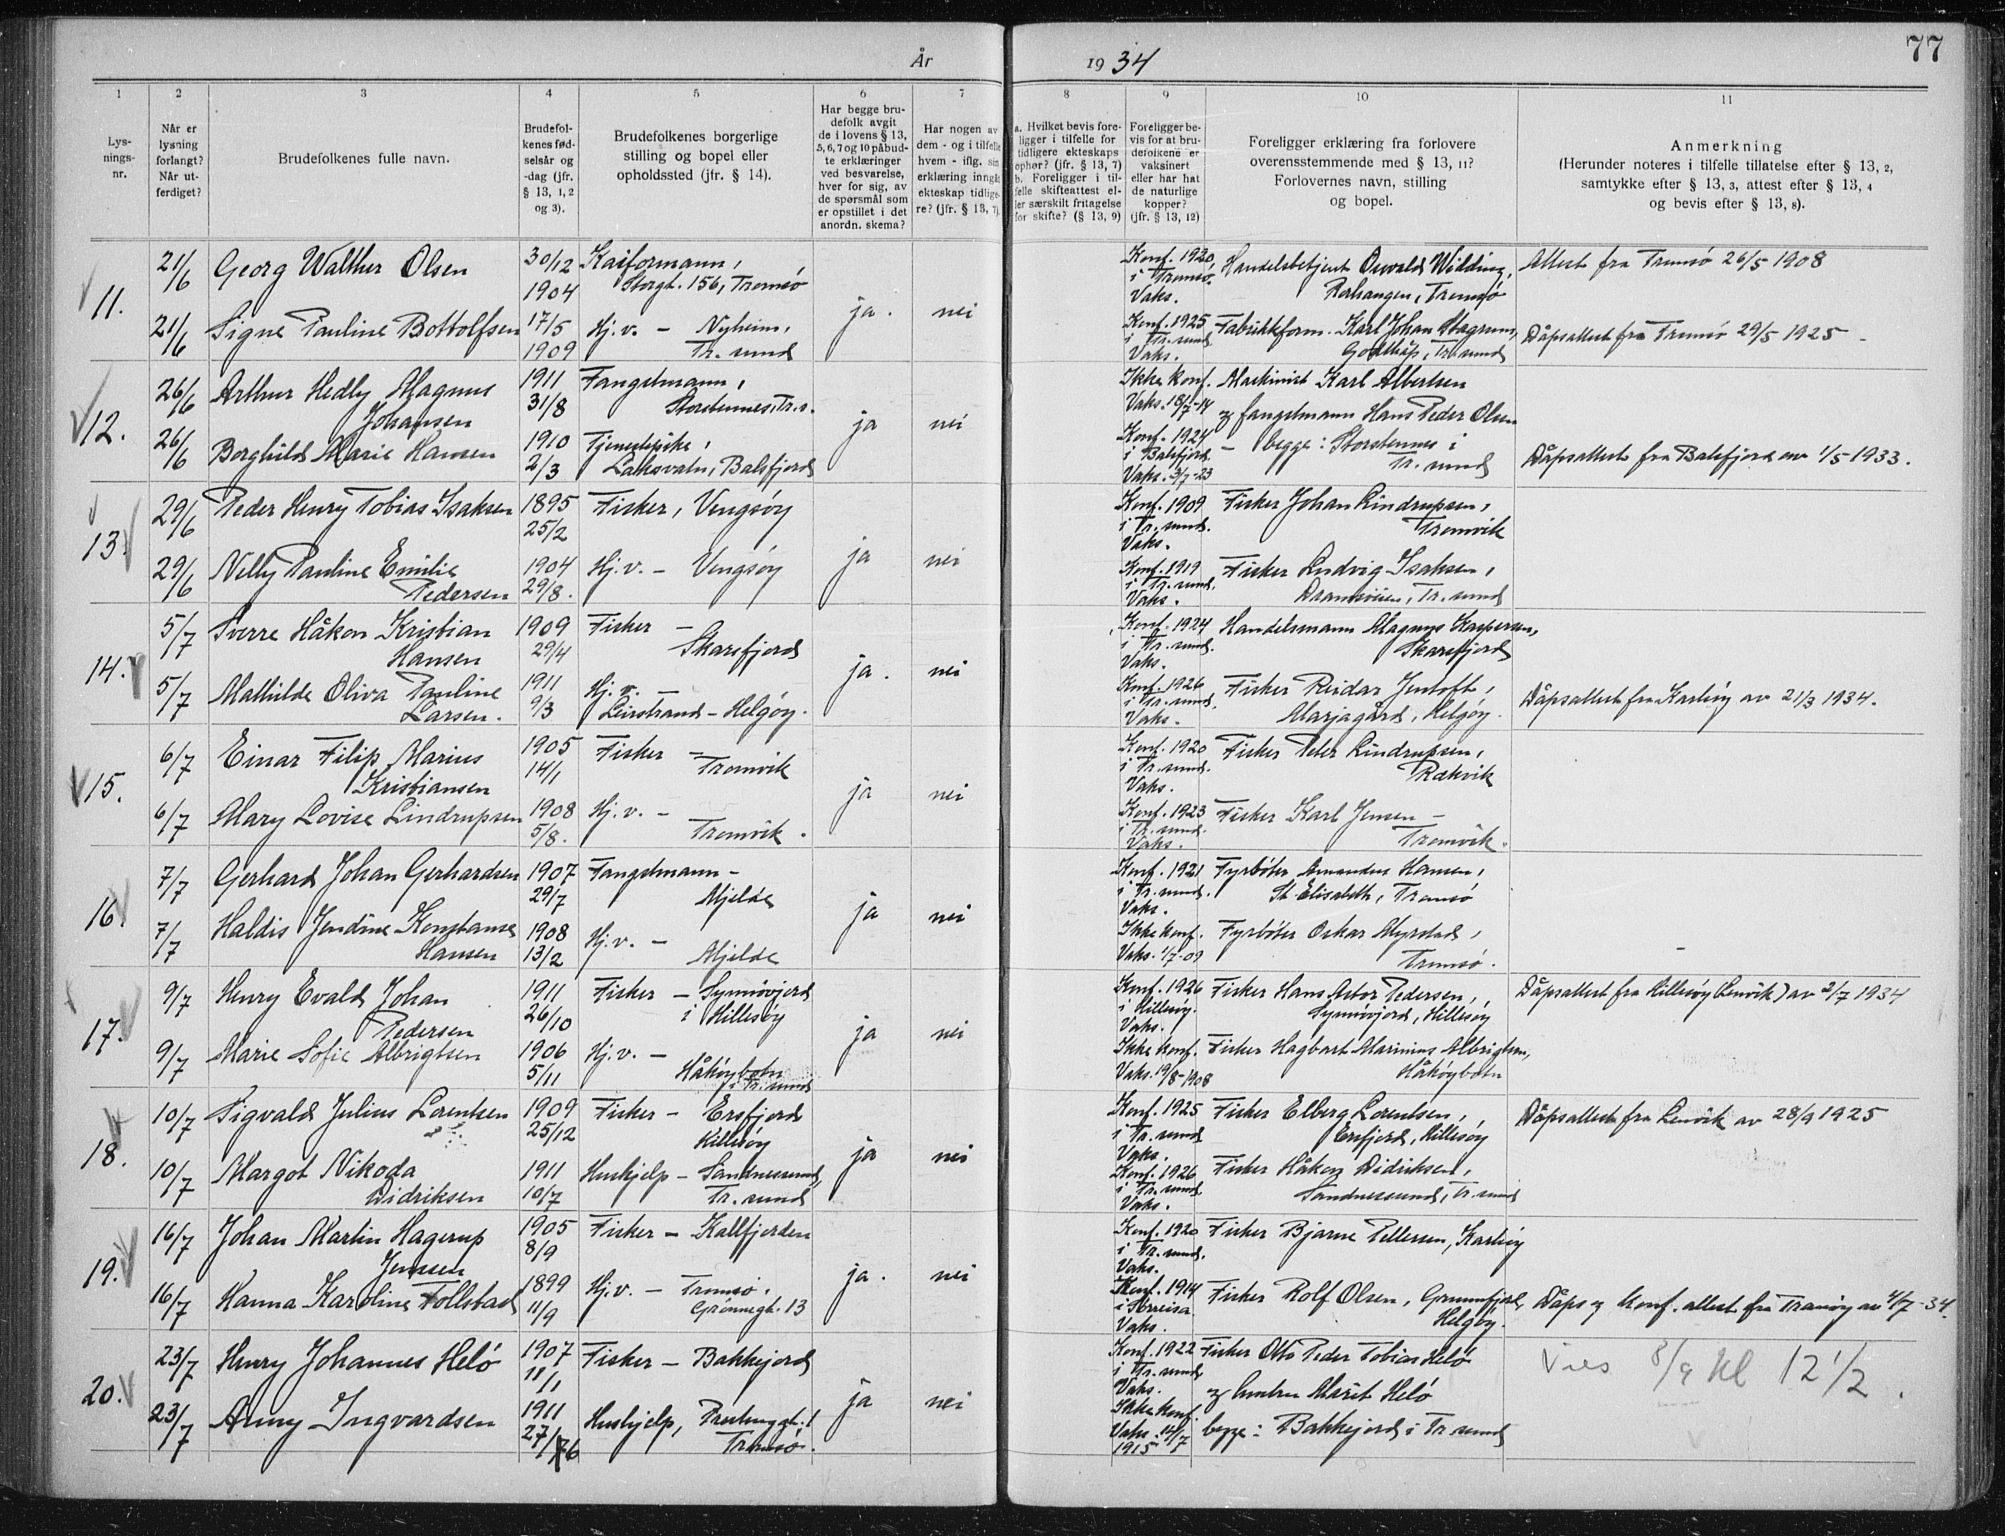 År 1934
77
1
2
3
4
5
6
7
8
9
10
11
Lys-
nings-
nr.
Når er
lysning
forlangt?
Når ut-
ferdiget?
Brudefolkenes fulle navn.
Brudefol-
kenes fød-
selsår og
-dag (jfr.
§ 13, 1, 2
og 3).
Brudefolkenes borgerlige
stilling og bopel eller
opholdssted (jfr. § 14).
Har begge bru-
defolk avgit
de i lovens § 13,
5, 6, 7 og 10 påbud-
te erklæringer
ved besvarelse,
hver for sig, av
de spørsmål som
er opstillet i det
anordn. skema?
Har nogen av
dem - og i tilfelle
hvem - iflg. sin
erklæring inngått
ekteskap tidlige-
re? (jfr. § 13, 7).
a. Hvilket bevis fore-
ligger i tilfelle for
tidligere ekteskaps
ophør? (jfr. § 13, 7)
b. Foreligger i til-
felle skifteattest el-
ler særskilt fritagelse
for skifte? (§ 13, 9)
Foreligger be-
vis for at bru-
defolkene er
vaksinert
eller har hat
de naturlige
kopper?
(jfr. § 13, 12)
Foreligger erklæring fra forlovere
overensstemmende med § 13, 11?
Forlovernes navn, stilling
og bopel.
Anmerkning
(Herunder noteres i tilfelle tillatelse efter § 13, 2,
samtykke efter § 13, 3, attest efter § 13, 4
og bevis efter § 13, 8).
11.
21/6 Georg Walther Olsen 30/12 1904 Kaiformann,
Storgt. 156, Tromsø
ja. nei
Konf. 1920
i Tromsø.
Vaks.
Handelsbetjent Osvald Wilding,
Tromsø
Attest fra Tromsø 26/5 1908
21/6 Signe Pauline Bottolfsen 17/5 1909 Hj.v. - Nyheim,
Tr.sund
Konf. 1925
i Tr.sund
Vaks.
Fabrikkform. Karl Johan
Godthåp, Tr.sund
Dåpsattest fra Tromsø 29/5 1925
12.
26/6 Arthur Hedly Magnus
Johansen
1911 31/8 Fangstmann,
Storstennes, Tr.s.
ja nei
Ikke konf.
Vaks. 18/7-14
Maskinist Karl Albertsen
og fangstmann Hans Peder Olsen
26/6 Borghild Marie Hansen 1910 2/3 Tjenestepike,
Laksvatn, Balsfjord
Konf. 1924
i Balsfjord
Vaks. 3/7-23
- begge: Storstennes i
Tr.sund
Dåpsattest fra Balsfjord av 1/5-1933.
13.
29/6 Peder Henry Tobias Isaksen 1895 25/2 Fisker, Vengsøy
ja nei
Konf. 1909
i Tr.sund.
Vaks.
Fisker Johan Lindrupsen,
Tromvik
29/6 Nelly Pauline Emilie
Pedersen
1904 29/8. Hj.v. - Vengsøy
Konf. 1919
i Tr.sund.
Vaks.
Fisker Ludvig Isaksen,
Tr.sund
14.
5/7 Sverre Håkon Kristian
Hansen
1909 29/4 Fisker -
Skarsfjord
ja. nei
Konf. 1924
i Tr.sund.
Vaks.
Handelsmann Magnus Kaspersen,
Skarsfjord
5/7 Mathilde Oliva Pauline
Larsen.
1911 9/3 Hj.v.
Leirstrand - Helgøy.
Konf. 1926
i Tr.sund.
Vaks.
Fisker Reidar Jentoft,
Marjagård, Helgøy.
Dåpsattest fra Karlsøy av 21/3 1934.
15.
6/7 Einar Filip Marius
Kristiansen
1905 14/1 Fisker -
Tromvik
ja nei
Konf. 1920
i Tr.sund.
Vaks.
Fisker Peter Lindrupsen,
Rekvik
6/7 Mary Lovise Lindrupsen 1908 5/8. Hj.v. -
Tromvik.
Konf. 1923
i Tr.sund.
Vaks.
Fisker Karl Jensen -
Tromvik.
16.
7/7 Gerhard Johan Gerhardsen 1907 29/7 Fangstmann -
Mjelde
ja nei
Konf. 1921
i Tr.sund.
Vaks.
Fyrbøter Amandus Hansen,
St. Elisabeth, Tromsø
7/7 Haldis Jendine Konstanse
Hansen
1908 13/2 Hj.v. -
Mjelde
Ikke konf.
Vaks. 1/7-09
Fyrbøter Oskar Myrstad,
Tromsø.
17.
9/7 Henry Evald Johan
Pedersen
1911 26/10 Fisker -
i Hillesøy
ja nei
Konf. 1926
i Hillesøy.
Vaks.
Fisker Hans Astor Pedersen,
Hillesøy
Dåpsattest fra Hillesøy (Lenvik) av 2/7 1934
9/7 Marie Sofie Albrigtsen 1906 5/11 Hj.v. -
Håkøybotn
i Tr.sund
Ikke konf.
Vaks. 19/8-1908
Fisker Hagbart Marinius Albrigtsen,
Håkøybotn
18.
10/7 Sigvald Julius Lorentsen 1909 25/12 Fisker - Ersfjord
Hillesøy
ja nei
Konf. 1925
i Tr.sund
Vaks.
Fisker Elberg Lorentsen,
Ersfjord, Hillesøy
Dåpsattest fra Lenvik av 28/9 1925
10/7 Margot Nikoda
Didriksen
1911 10/7 Hushjelp - Sandnessund,
Tr.sund
Konf. 1926
i Tr.sund.
Vaks.
Fisker Håkon Didriksen,
Sandnessund, Tr.sund
19.
16/7 Johan Martin Hagerup
Jensen
1905 8/9 Fisker - Kallfjorden
ja. nei
Konf. 1920
i Tr.sund.
Vaks.
Fisker Bjarne Pettersen, Karlsøy
16/7 Hanna Karoline Tollstad 1899 11/9 Hj.v. - Tromsø,
Grønnegt. 13
Konf. 1914
i Sørreisa
Vaks.
Fisker Rolf Olsen, Grunnfjord,
Helgøy.
Dåps og konf. attest fra Tranøy av 4/7-34.
20.
23/7 Henry Johannes Helø 1907 11/1 Fisker - Bakkejord
ja nei
Konf. 1922
i Tr.sund
Vaks.
Fisker Otto Peder Tobias Helø
og hustru Marit Helø
Vies 8/9 kl 12 1/2.
23/7 Anny Ingvardsen 1911 27/6 Hushjelp,
Tromsø.
Ikke konf.
Vaks. 14/7
1915
begge: Bakkejord i Tr.sund